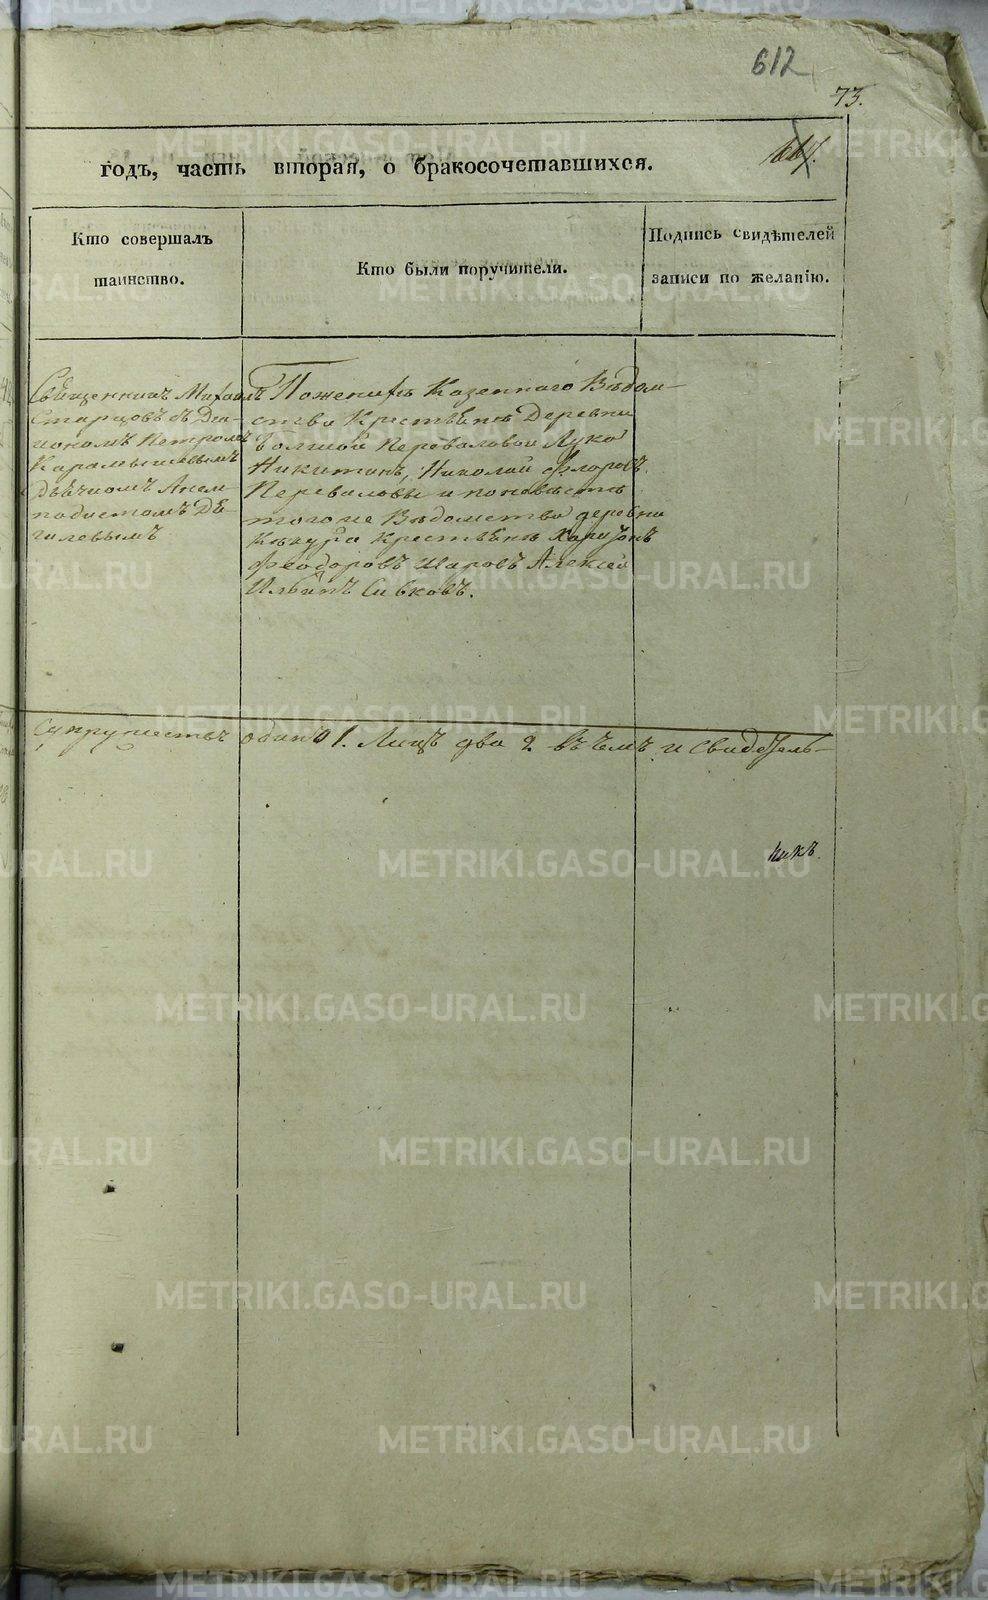 612
73.
годъ, часть вторая, о бракосочетавшихся.
Кто совершалъ
таинство.
Кто были поручители.
Подпись свидѣтелей
записи по желанію.
Священникъ Михаилъ
Старцовъ съ Діа-
кономъ Петромъ
Карамышевымъ
дьячкомъ Анем-
подистомъ Дѣ-
гилевымъ
По женихѣ Казеннаго Вѣдом-
ства Крестьяне Деревни
Переваловой Лука
Никитинъ, Николай Флоровъ
Переваловы и по невѣстѣ
того же Вѣдомства деревни
Крестьяне Харитонъ
Феодоровъ Шаровъ Алексей
Ильинъ Сивковъ.
Супружествъ одино 1. Лицъ два 2 въ чемъ и свидетель-
METRIKI.GASO-URAL.RU